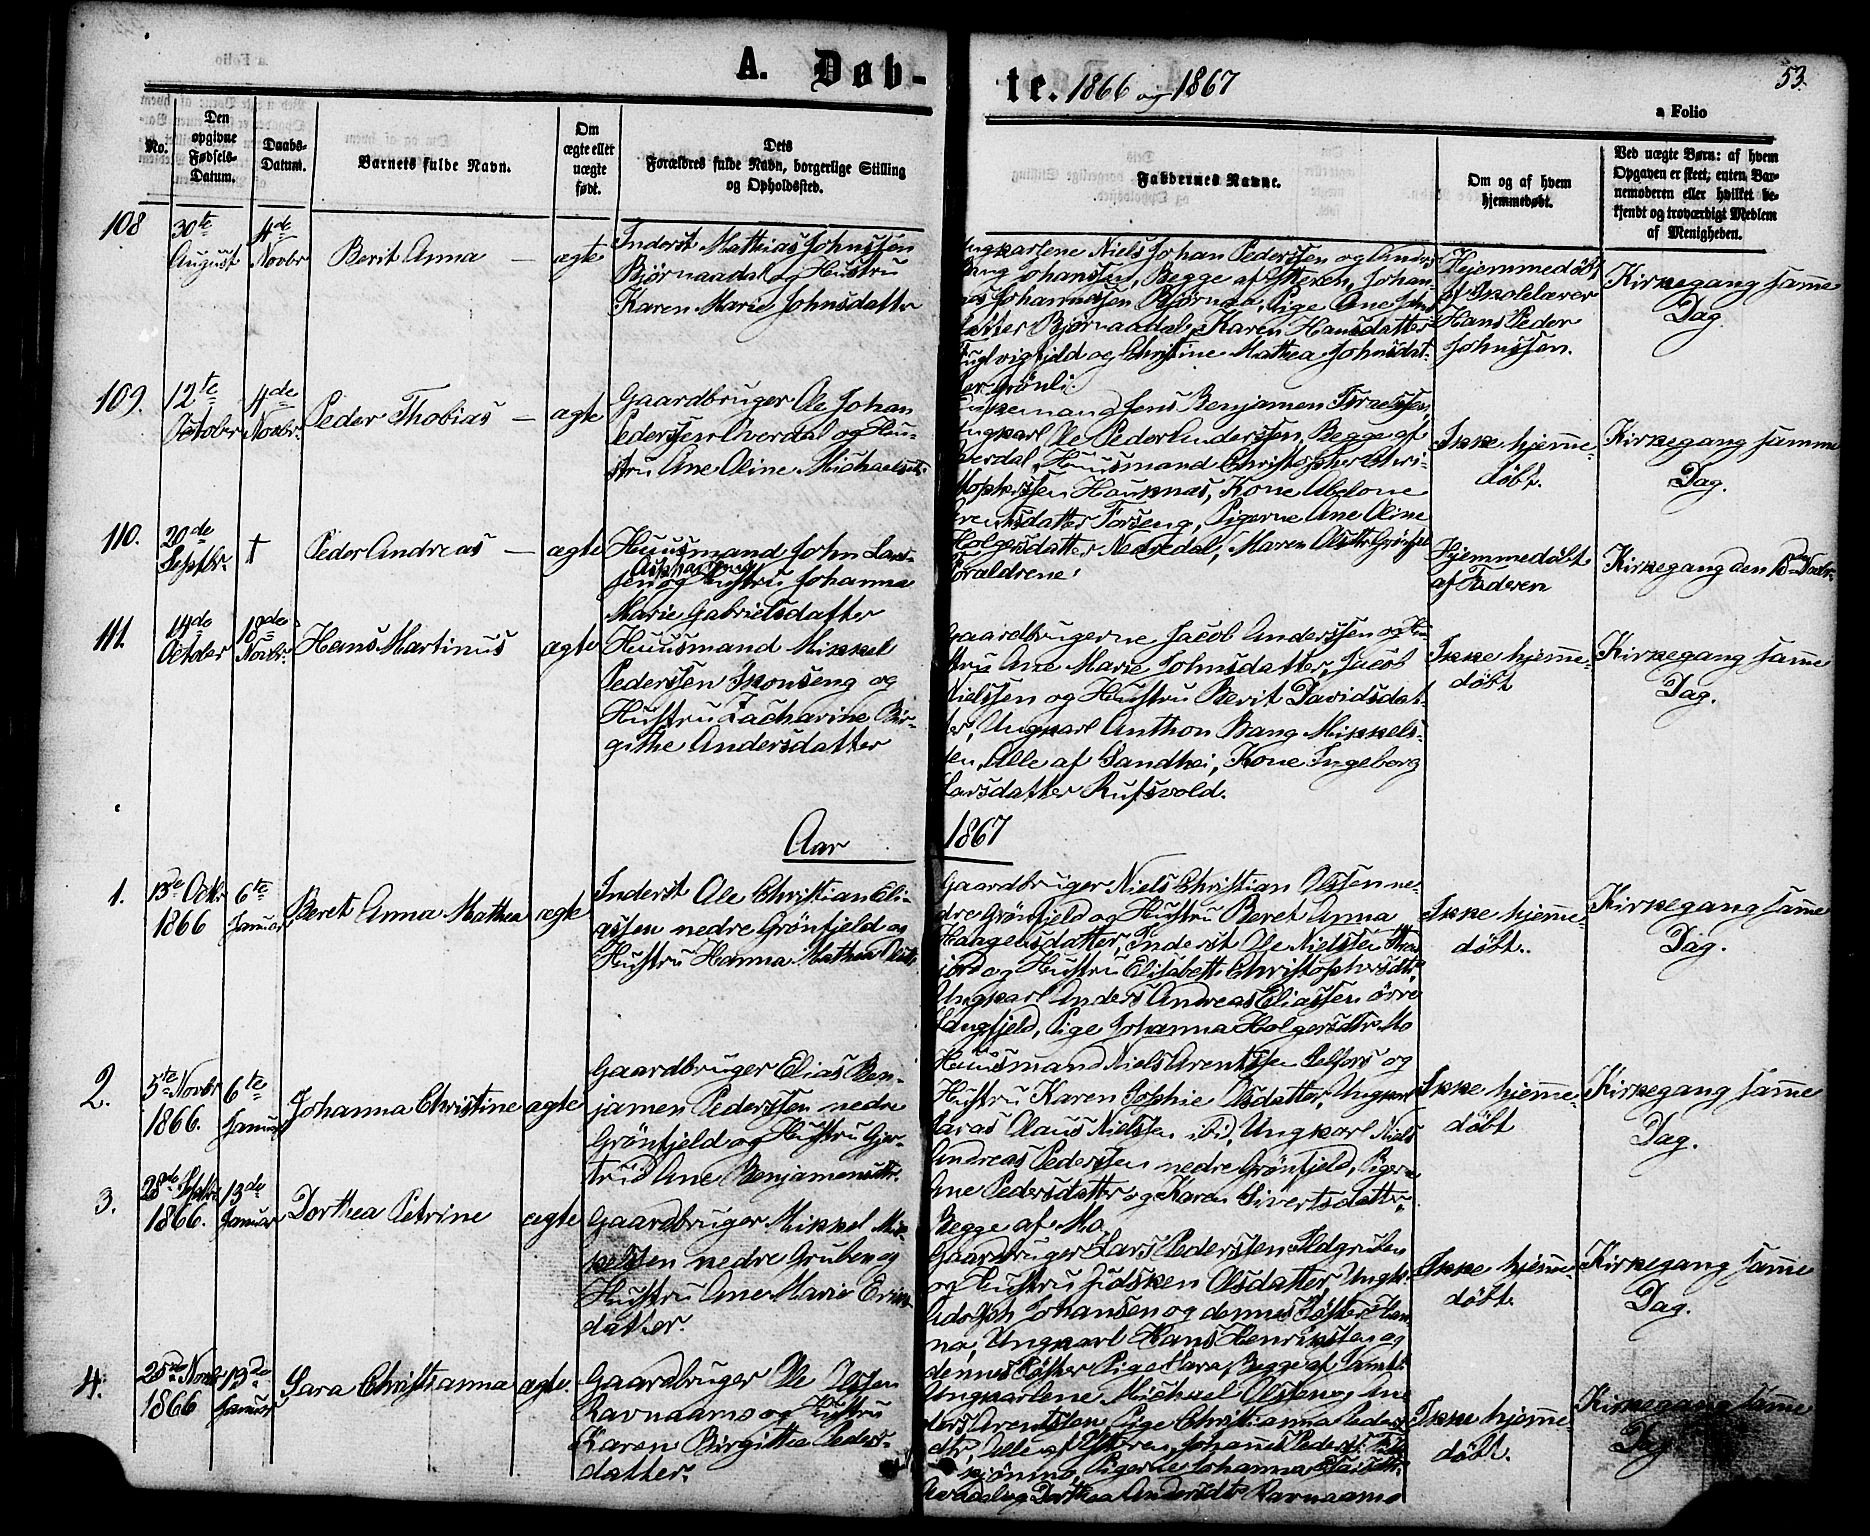 A. Døb-
te. 1866 og 1867
53.
a Folio
No.
Den opgivne Fødsels-Datum.
Daabs-Datum.
Barnets fulde Navn.
Om ægte eller uægte født.
Dets Forældres fulde Navn, borgerlige Stilling og Opholdssted.
Faddernes Navne.
Om og af hvem hjemmedøbt.
Ved uægte Børn: af hvem Opgaven er skeet, enten Barnemoderen eller hvilket bekjendt og troværdigt Medlem af Menigheden.
108
30te August
4de Novbr
Berit Anna —
ægte
Inderst Mathias Johnssen
Bjørnaadal og Hustru
Karen Marie Johnsdatter
Ungkarlene Niels Johan Pederssen og Anders
Bang Johanssen, Begge af Ytteren, Johan-
nes Johannessen Bjørnaa, Pige Ane John
datter Bjørnaadal, Karen Hansdatter
og Christine Mathea Johnsdat-
ter Grønli
Hjemmedøbt
af Skolelærer
Hans Peder
Johnssen.
Kirkegang samme
Dag.
109.
12te October
4de Novbr.
Peder Thobias —
ægte
Gaardbruger Ole Johan
Pederssen Overdal og Hu-
stru Ane Oline Michaelsdtr
Jens Benjamen Israelssen,
Ungkarl Ole Peder Anderssen, Begge af
Overdal, Huusmand Christopher Chri-
stophersen Hauknæs, Kone Abelone
Arentsdatter Forseng, Pigerne Ane Oline
Holgersdatter Nedredal, Maren Olsdtr
Ikke hjemme-
døbt.
Kirkegang samme
Dag.
110.
20de Septbr.
†
Peder Andreas —
ægte
Huusmand John Lars-
sen og Hustru Johanna
Marie Gabrielsdatter
Forældrene.
Hjemmedøbt
af Faderen
Kirkegang den 18de Novbr.
111.
14de October
18de Novbr.
Hans Martinus
ægte
Huusmand Mikkel
Pederssen Skonseng og
Hustru Zacharine Bir-
githe Andersdatter
Gaardbrugerne Jacob Anderssen og Hu-
stru Ane Marie Johnsdatter, Jacob
Nielssen og Hustru Berit Davidsdat-
ter, Ungkarl Anthon Bang Mikkels-
sen, Alle af Sandhei, Kone Ingeborg
Larsdatter Rufsvold.
Ikke hjemme-
døbt
Kirkegang samme
Dag.
Aar 1867
1.
13de Octbr 1866
6te Januar
Beret Anna Mathea
ægte
Inderst Ole Christian Eli-
assen nedre Grønfjeld og
Hustru Hanna Mathea Olsdtr
Gaardbruger Niels Christian Olssen ne-
dre Grønfjeld og Hustru Beret Anna
Haagensdatter, Inderst Ole Nielssen
og Hustru Elisabeth Christophersdtr
Ungkarl Anders Andreas Eliassen øvre
Langfjeld, Pige Johanna Holgersdtr Mo
Ikke hjemme-
døbt.
Kirkegang samme
Dag.
2.
5te Novbr 1866.
6te Januar
Johanna Christine
ægte
Gaardbruger Elias Ben-
jamen Pederssen nedre
Grønfjeld og Hustru Gjer-
trud Ane Benjamensdtr.
Huusmand Niels Arentssen Selfors og
Hustru Karen Sophie Olsdatter, Ungkarl
Olaus Nielssen ibid, Ungkarl Niels
Andreas Pederssen nedre Grønfjeld, Piger-
ne Pedersdatter og Karen Sivertsdatter
Begge af Mo
Ikke hjemme-
døbt
Kirkegang samme
Dag.
3.
28de Septbr 1866.
13de Januar
Dorthea Petrine
ægte
Gaardbruger Mikkel Mik-
kelssen nedre Gruben og
Hustru Ane Marie Eriks
datter.
Gaardbruger Lars Pederssen Ildgruben
og Hustru Olsdatter, Ungk.
Adolph Johansen og dennes Søster Han-
na, Ungkarl Hans Henrikssen og
dennes Søster Pige Sara, Begge af
Ikke hjemme-
døbt.
Kirkegang samme
Dag.
4.
25de Novbr 1866
13de Januar
Sara Christianna
ægte.
Gaardbruger Ole Olssen
Ravnaamo og Hustru
Karen Birgitthe Peders-
datter.
Ungkarlene Michael Olssen og An-
ders Arentssen, Pige Christianna Peders
dtr, Alle af Ytteren, Johannes Peders.
Pigerne Johanna
og Dorthea Andersdtr Ravnaamo
Ikke hjemme-
døbt.
Kirkegang samme
Dag